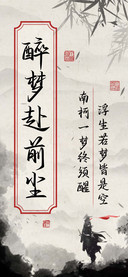 醉梦赴前尘
浮生若梦皆是空
南柯一梦终须醒